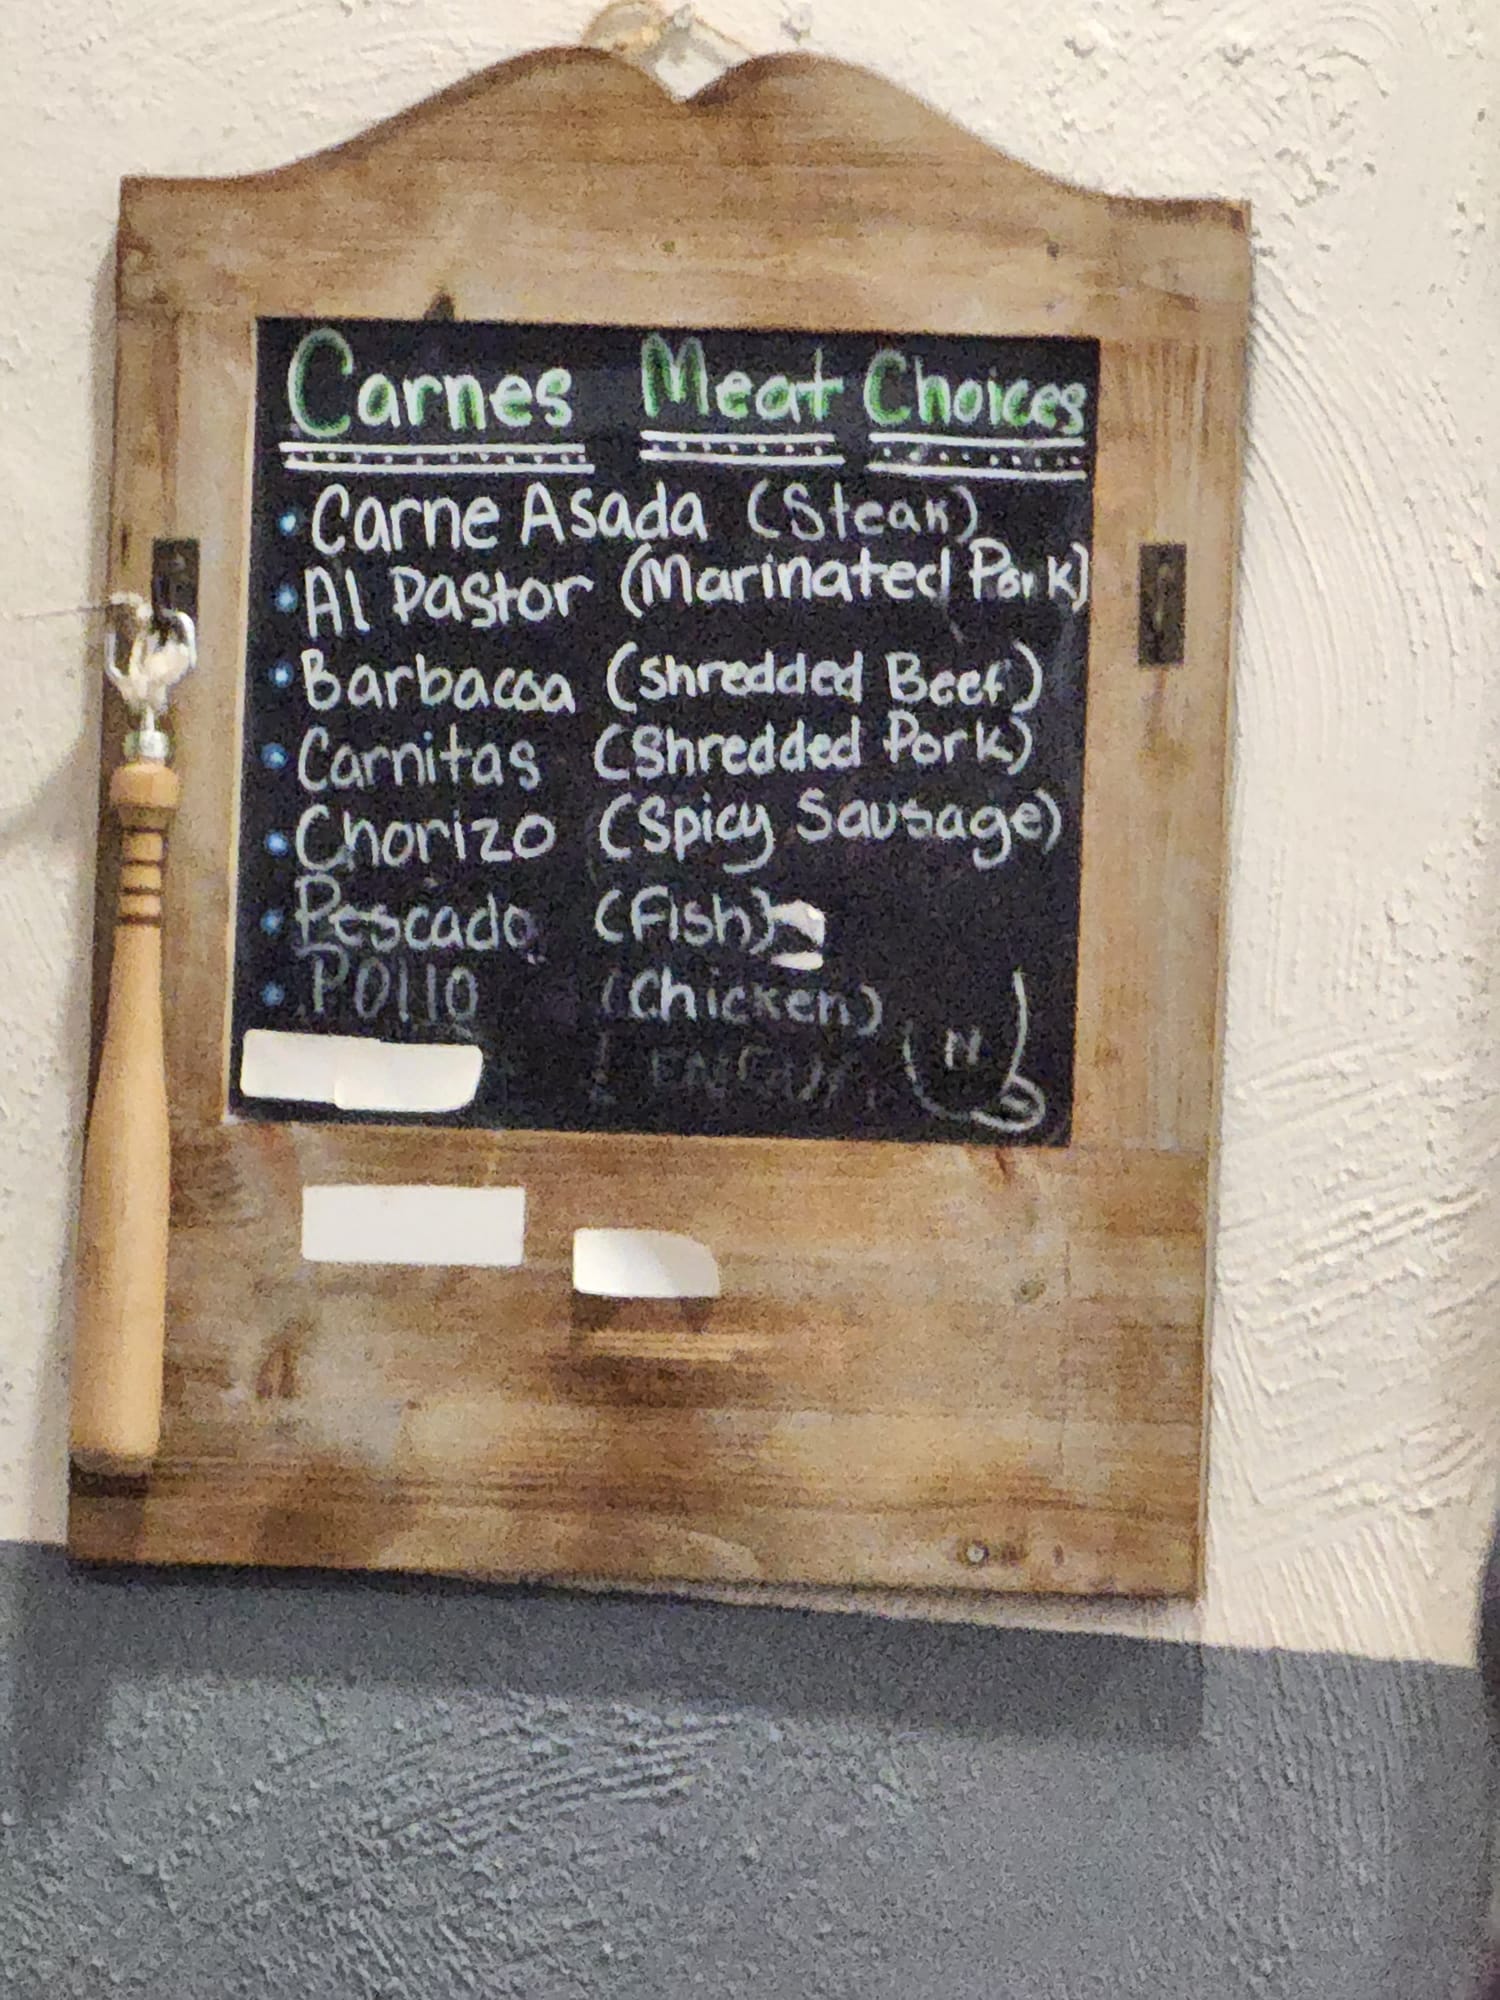 Carnes Meat Choices
• Carne Asada (Steak)
• Al Pastor (Marinated Pork)
• Barbacoa (Shredded Beef)
• Carnitas (Shredded Pork)
• Chorizo (Spicy Sausage)
• Pescado (Fish)
• Pollo (Chicken)